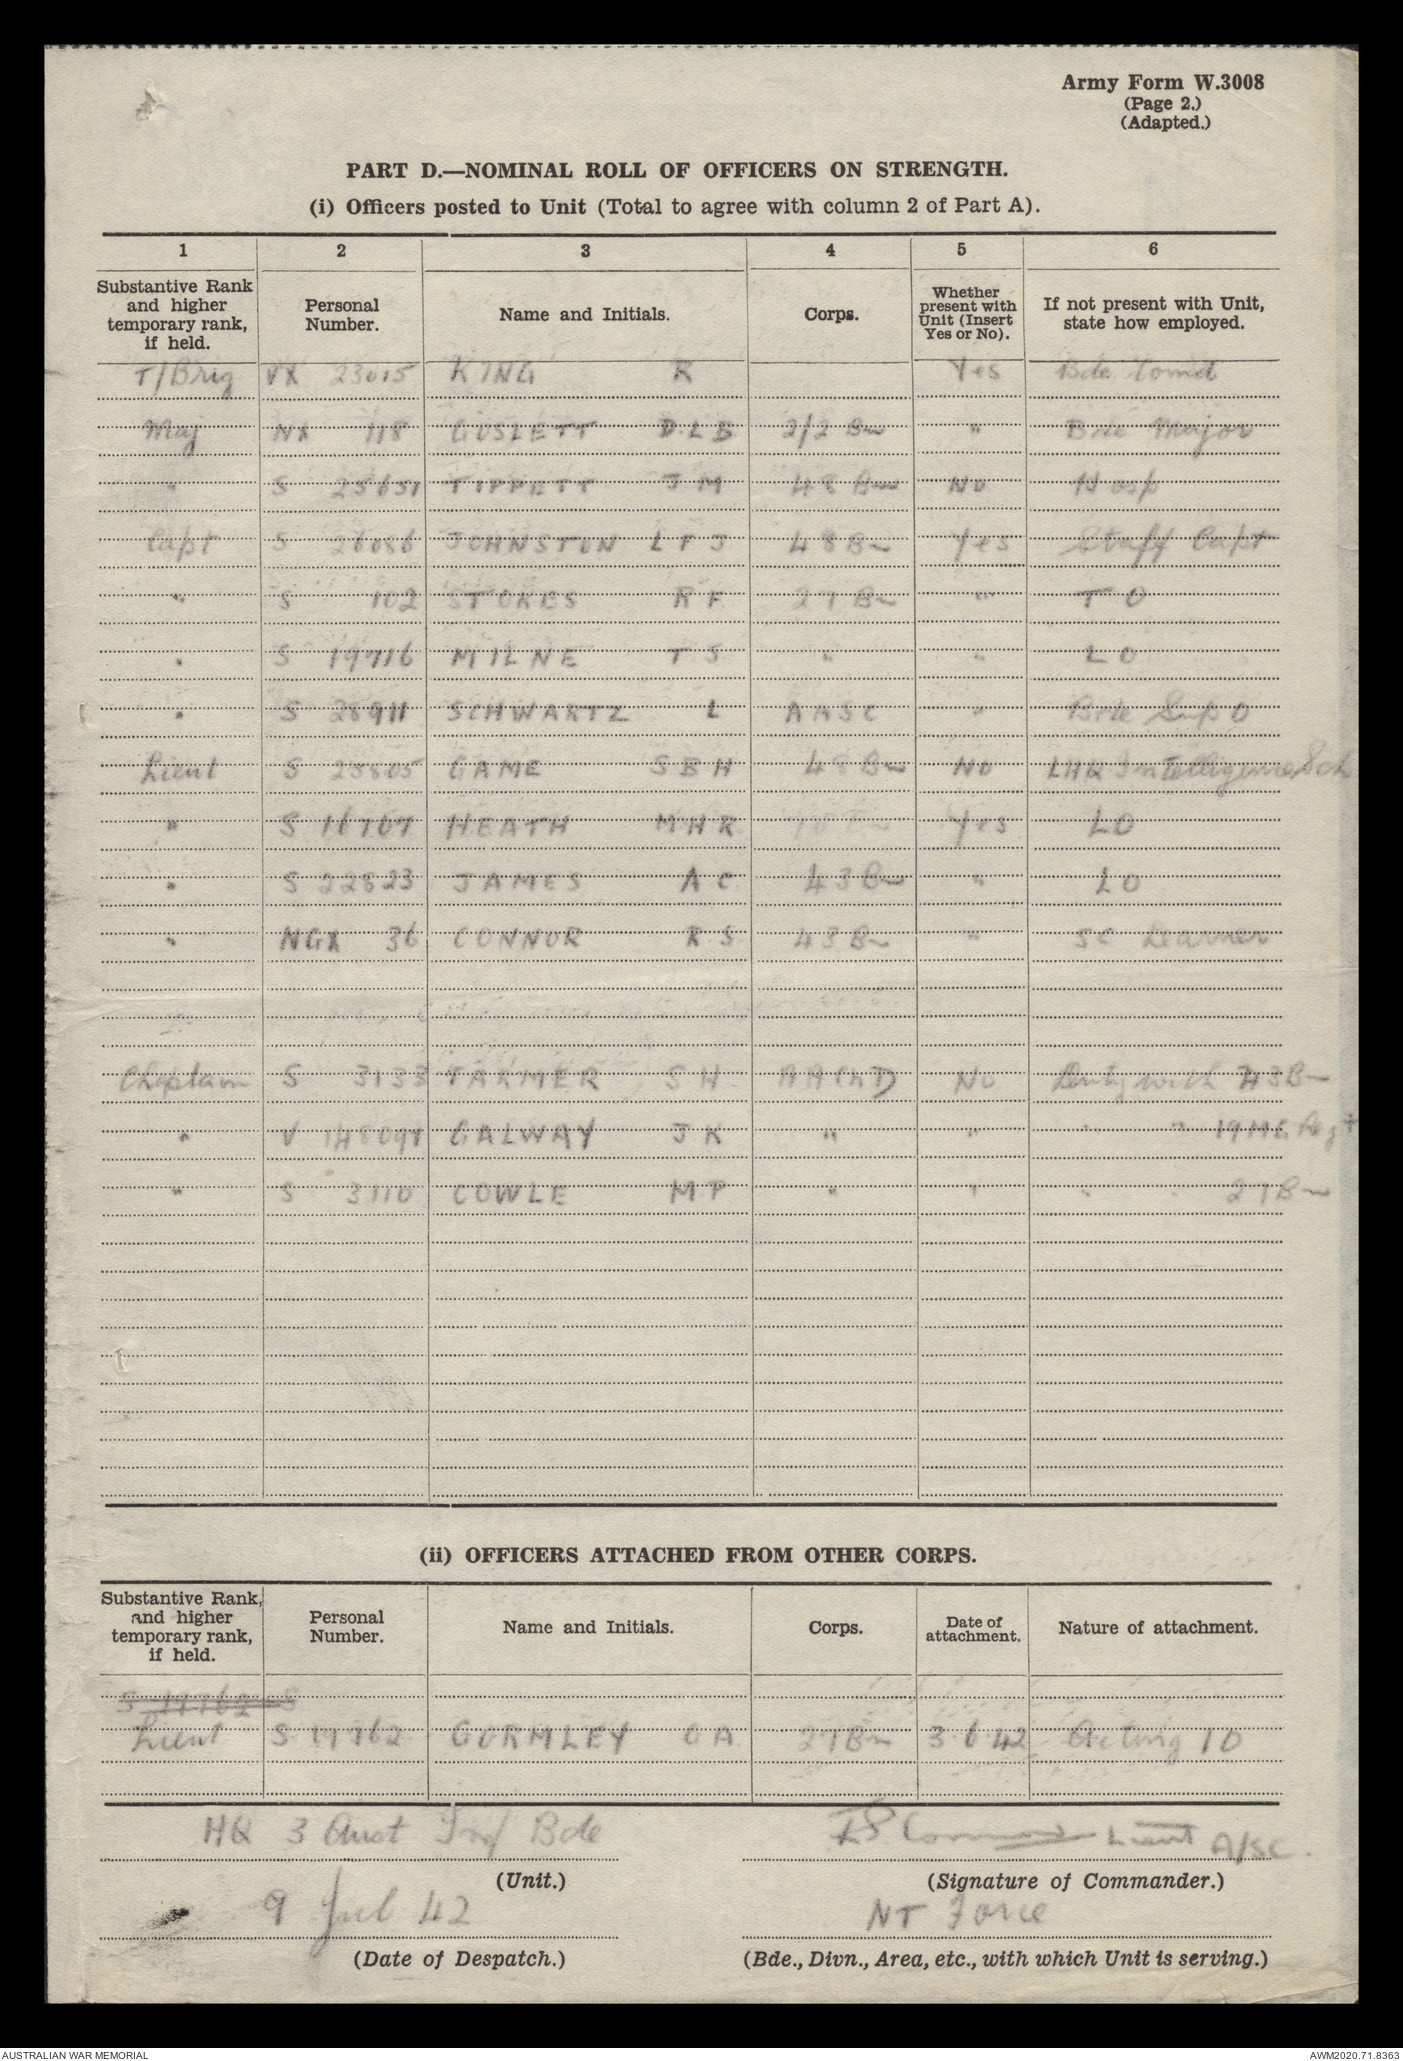 Army Form W.3008
(Page 2.)
(Adapted.)
PART D.—NOMINAL ROLL OF OFFICERS ON STRENGTH.
(i) Officers posted to Unit (Total to agree with column 2 of Part A).
1 2 3 4 5 6
Substantive Rank and higher temporary rank, if held. Personal Number. Name and Initials. Corps. Whether present with Unit (Insert Yes or No). If not present with Unit, state how employed.
T/Brig VX 23015 KING R Yes Bde Comd
Maj NX 118 GOSLETT D.L.B 2/2 Bn " Bde Major
" S 25651 TIPPETT J M 48 Bn No Hosp
Capt S 26086 JOHNSTON L F J 48 Bn Yes Staff Capt
" S 102 STOKES R F 27 Bn " T O
" S 19716 MILNE T S " " L O
" S 28911 SCHWARTZ L AASC " Bde Sup O
Lieut S 25805 GAME S B H 48 Bn No LHQ Intelligence Sch
" S 16707 HEATH M H R Yes LO
" S 22823 JAMES A C 43 Bn " LO
" NGX 36 CONNOR R S 43 Bn " SC Learner
Chaplain S 3133 TARMER S H No Duty with 43 Bn
" V 148098 GALWAY J K " " " " 19 MG Regt
" S 3110 COWLE M P " " " " 27 Bn
(ii) OFFICERS ATTACHED FROM OTHER CORPS.
Substantive Rank, and higher temporary rank, if held. Personal Number. Name and Initials. Corps. Date of attachment. Nature of attachment.
S 19762 S
Lieut S 19762 GORMLEY O A 27 Bn 3.6.42 Acting IO
HQ 3 Aust Inf Bde Lieut A/SC.
(Unit.) (Signature of Commander.)
9 Jul 42 NT Force
(Date of Despatch.) (Bde., Divn., Area, etc., with which Unit is serving.)
AUSTRALIAN WAR MEMORIAL AWM2020.71.8363